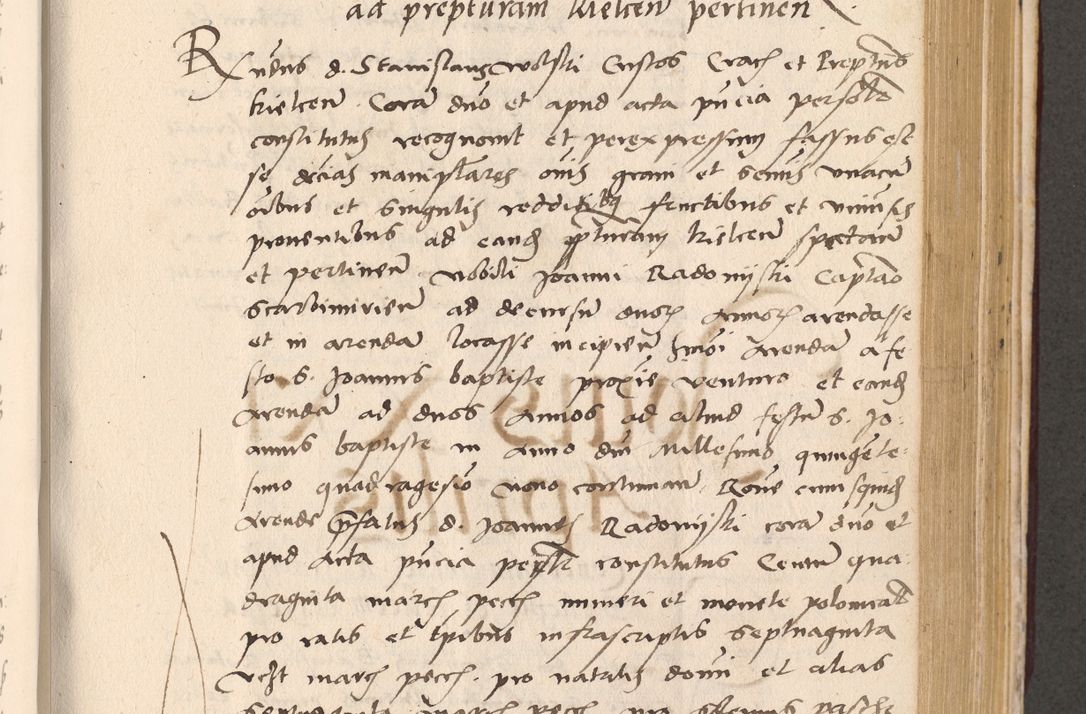 ad prepturam kielcen pertinen
Rndus d. Stanislaus Wolski Custos Crac et Preptus
kielcen Cora dno et apud acta pncia persolr
constitutus recognovit et per expressum fassus est
se decias manipulares ovis grani et seminis unacu
oibus et singulis redditibus fructibus et univsis
proventibus ad eand ppturam kielcen spectan
et pertinen Nobili Joanni Radomyski Captaneo
Scarbimirien ad decursu duor Annor arendasse
et in arenda locasse incipien hmoi Arenda a fe
sto S. Joannis baptiste proxie venturo et eand
Arenda ad duos Annos ad aliud festu S. Jo-
annis baptiste in Anno dni Millesimo quingete-
simo quadragesio nono continuan Rone cuiusquid
Arende pfatus d. Joannes Radomyski cora dno et
apud Acta pncia peplr constitutus Centu qua-
draginta marc pecc numeri et monete polonicalis
pro ratis et tpibus infrascriptis Septuaginta
vcht marc pecc. pro natalis domi et alias
septuaginta marc pecc pro Pasche